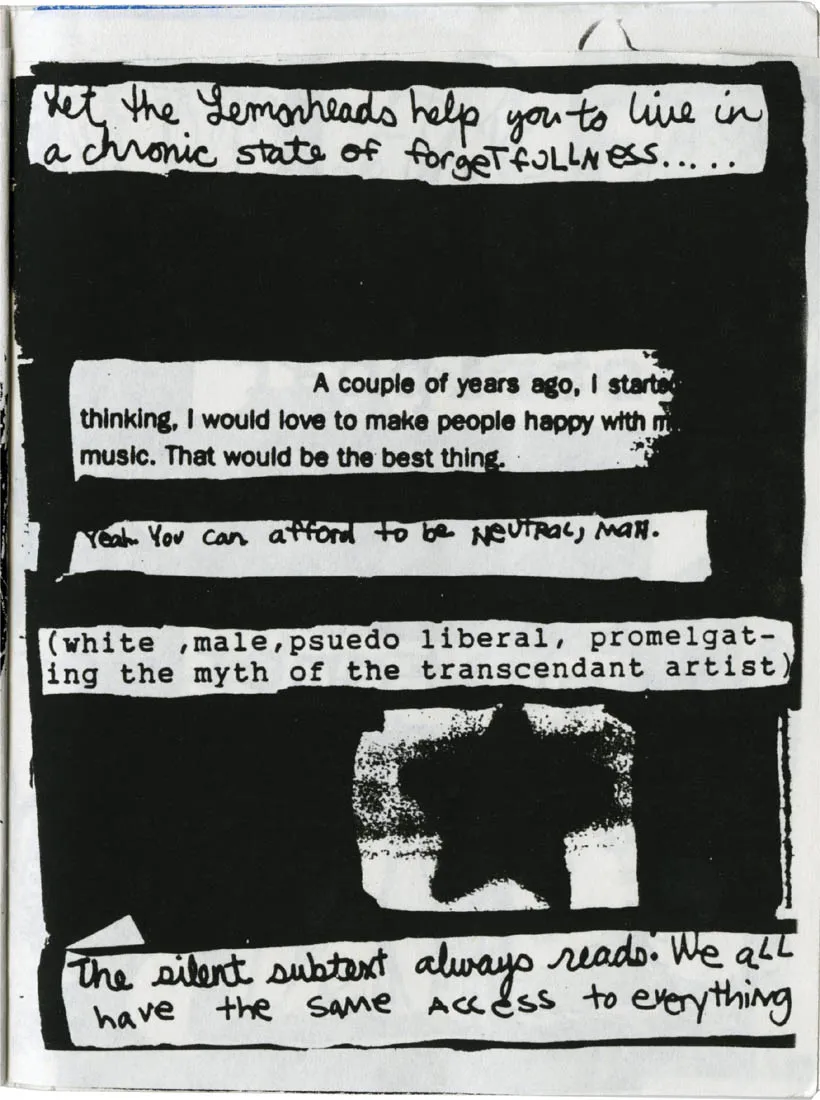 Let the Lemonheads help you to live in
a chronic state of forgeTfULLNESS.....
A couple of years ago, I started
thinking, I would love to make people happy with
music. That would be the best thing.
Yeah. You can afford to be NeUTRAL, MAN.
(white ,male,psuedo liberal, promelgat-
ing the myth of the transcendant artist)
The silent subtext always reads: We aLL
have the same ACCESS to everything